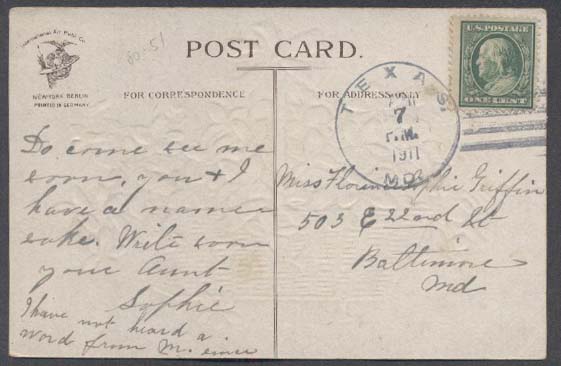 80-51
International Art Publ. Co.
NEW-YORK BERLIN
PRINTED IN GERMANY
POST CARD.
FOR CORRESPONDENCE
FOR ADDRESS ONLY
U.S. POSTAGE
ONE CENT
TEXAS.
7
P.M.
1911
MD.
Do come see me
soon, you & I
have a name
sake. Write soon
your Aunt
Sophie
I have not heard a
word from M. since
Miss Griffin
503 E 22nd St
Baltimore
Md